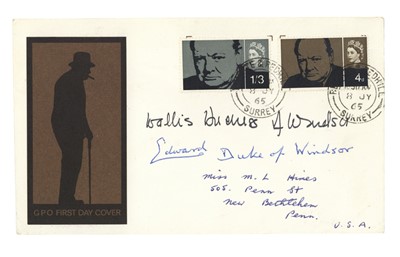 1/3
4D
8 JY
65
SURREY
8 JY
65
SURREY
Wallis Duchess of Windsor
Edward Duke of Windsor
Miss M. L Hines
505. Penn St
New Bethlehem
Penn.
U.S.A.
GPO FIRST DAY COVER